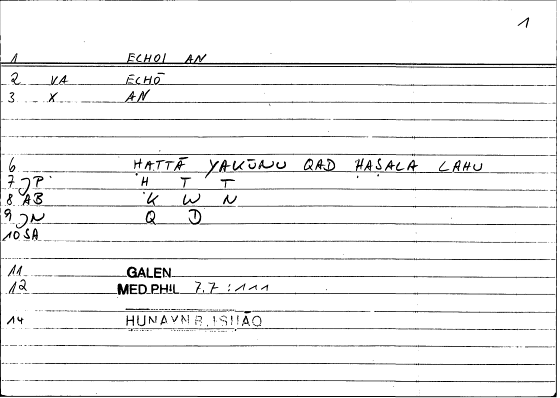 1
1 ECHOI AN
2 VA ECHŌ
3 X AN
6 ḤATTĀ YAKŪNU QAD ḤAṢALA LAHU
7 JP Ḥ T T
8 AB K W N
9 JN Q D
10 SA
11 GALEN
12 MED.PHIL 7.7 : 111
14 ḤUNAYN B. ISḤĀQ